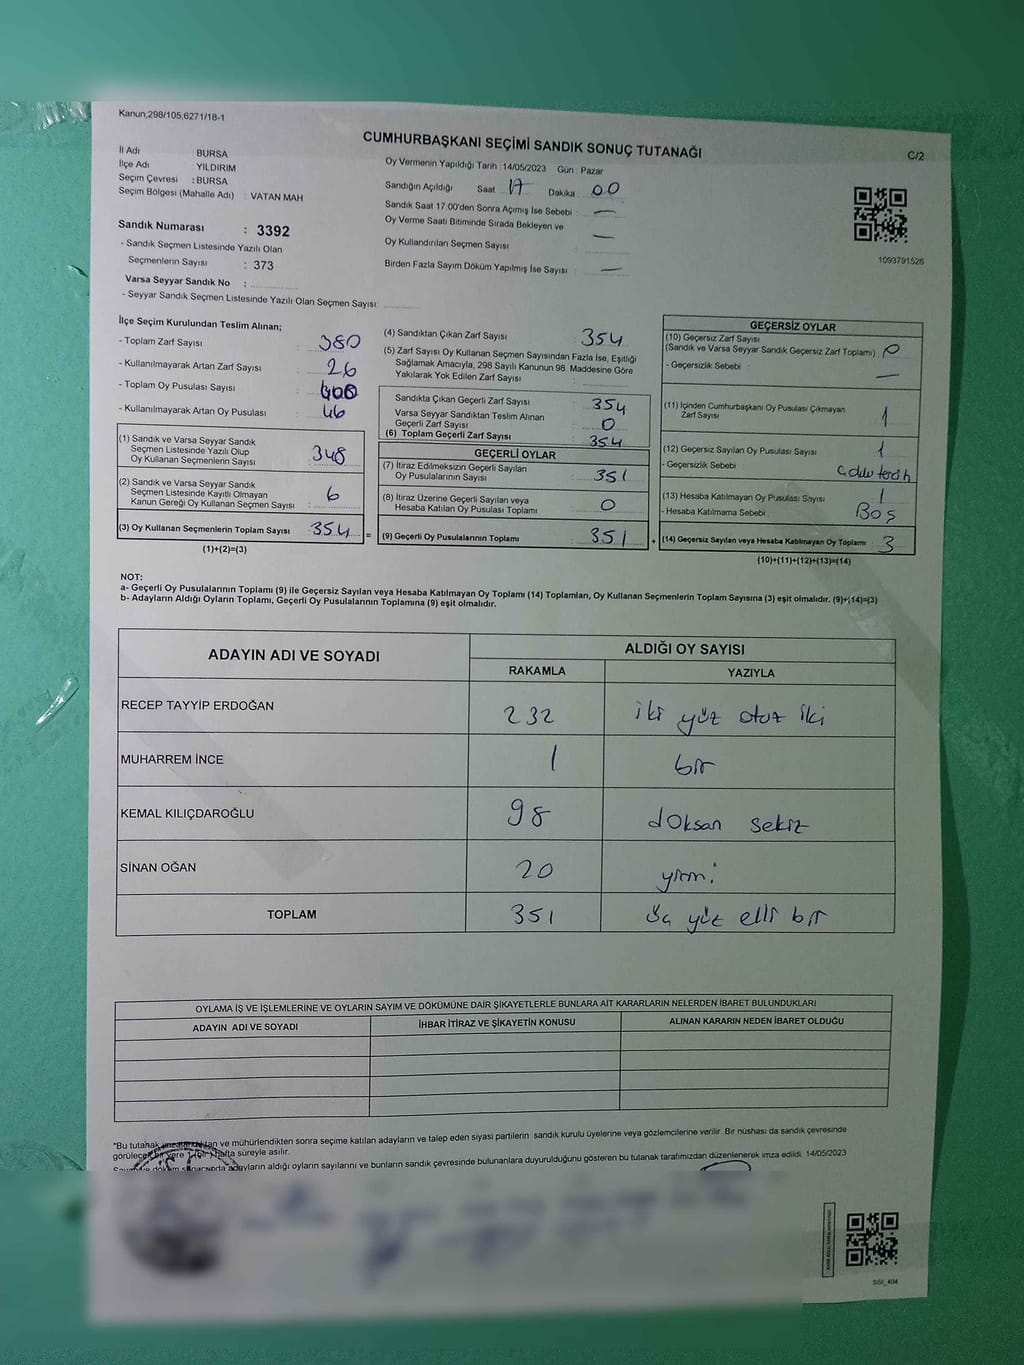 Kanun,298/105,6271/18-1
CUMHURBAŞKANI SEÇİMİ SANDIK SONUÇ TUTANAĞI
C/2
İl Adı BURSA
İlçe Adı YILDIRIM
Seçim Çevresi : BURSA
Seçim Bölgesi (Mahalle Adı) : VATAN MAH
Sandık Numarası : 3392
- Sandık Seçmen Listesinde Yazılı Olan
Seçmenlerin Sayısı : 373
Varsa Seyyar Sandık No :
- Seyyar Sandık Seçmen Listesinde Yazılı Olan Seçmen Sayısı:
Oy Vermenin Yapıldığı Tarih : 14/05/2023 Gün : Pazar
Sandığın Açıldığı Saat 17 Dakika 00
Sandık Saat 17:00'den Sonra Açımış İse Sebebi : —
Oy Verme Saati Bitiminde Sırada Bekleyen ve
Oy Kullandırılan Seçmen Sayısı : —
Birden Fazla Sayım Döküm Yapılmış İse Sayısı : —
1093791526
İlçe Seçim Kurulundan Teslim Alınan;
- Toplam Zarf Sayısı : 380
- Kullanılmayarak Artan Zarf Sayısı : 26
- Toplam Oy Pusulası Sayısı : 400
- Kullanılmayarak Artan Oy Pusulası : 46
(1) Sandık ve Varsa Seyyar Sandık
Seçmen Listesinde Yazılı Olup
Oy Kullanan Seçmenlerin Sayısı : 348
(2) Sandık ve Varsa Seyyar Sandık
Seçmen Listesinde Kayıtlı Olmayan
Kanun Gereği Oy Kullanan Seçmen Sayısı : 6
(3) Oy Kullanan Seçmenlerin Toplam Sayısı : 354 =
(1)+(2)=(3)
(4) Sandıktan Çıkan Zarf Sayısı : 354
(5) Zarf Sayısı Oy Kullanan Seçmen Sayısından Fazla İse, Eşitliği
Sağlamak Amacıyla, 298 Sayılı Kanunun 98. Maddesine Göre
Yakılarak Yok Edilen Zarf Sayısı :
Sandıkta Çıkan Geçerli Zarf Sayısı : 354
Varsa Seyyar Sandıktan Teslim Alınan
Geçerli Zarf Sayısı : 0
(6) Toplam Geçerli Zarf Sayısı : 354
GEÇERLİ OYLAR
(7) İtiraz Edilmeksizin Geçerli Sayılan
Oy Pusulalarının Sayısı : 351
(8) İtiraz Üzerine Geçerli Sayılan veya
Hesaba Katılan Oy Pusulası Toplamı : 0
(9) Geçerli Oy Pusulalarının Toplamı : 351 +
GEÇERSİZ OYLAR
(10) Geçersiz Zarf Sayısı
(Sandık ve Varsa Seyyar Sandık Geçersiz Zarf Toplamı) : 0
- Geçersizlik Sebebi : —
(11) İçinden Cumhurbaşkanı Oy Pusulası Çıkmayan
Zarf Sayısı : 1
(12) Geçersiz Sayılan Oy Pusulası Sayısı : 1
- Geçersizlik Sebebi : tercih
(13) Hesaba Katılmayan Oy Pusulası Sayısı : 1
- Hesaba Katılmama Sebebi : Boş
(14) Geçersiz Sayılan veya Hesaba Katılmayan Oy Toplamı : 3
(10)+(11)+(12)+(13)=(14)
NOT:
a- Geçerli Oy Pusulalarının Toplamı (9) ile Geçersiz Sayılan veya Hesaba Katılmayan Oy Toplamı (14) Toplamları, Oy Kullanan Seçmenlerin Toplam Sayısına (3) eşit olmalıdır. (9)+(14)=(3)
b- Adayların Aldığı Oyların Toplamı, Geçerli Oy Pusulalarının Toplamına (9) eşit olmalıdır.
ADAYIN ADI VE SOYADI
ALDIĞI OY SAYISI
RAKAMLA YAZIYLA
RECEP TAYYİP ERDOĞAN 232 iki yüz otuz iki
MUHARREM İNCE 1 bir
KEMAL KILIÇDAROĞLU 98 doksan sekiz
SİNAN OĞAN 20 yirmi
TOPLAM 351 üç yüz elli bir
OYLAMA İŞ VE İŞLEMLERİNE VE OYLARIN SAYIM VE DÖKÜMÜNE DAİR ŞİKAYETLERLE BUNLARA AİT KARARLARIN NELERDEN İBARET BULUNDUKLARI
ADAYIN ADI VE SOYADI İHBAR İTİRAZ VE ŞİKAYETİN KONUSU ALINAN KARARIN NEDEN İBARET OLDUĞU
*Bu tutanak imzalandıktan ve mühürlendikten sonra seçime katılan adayların ve talep eden siyasi partilerin sandık kurulu üyelerine veya gözlemcilerine verilir. Bir nüshası da sandık çevresinde
görülecek bir yere 1 (bir) hafta süreyle asılır.
adayların aldığı oyların sayılarını ve bunların sandık çevresinde bulunanlara duyurulduğunu gösteren bu tutanak tarafımızdan düzenlenerek imza edildi. 14/05/2023
SGI_404